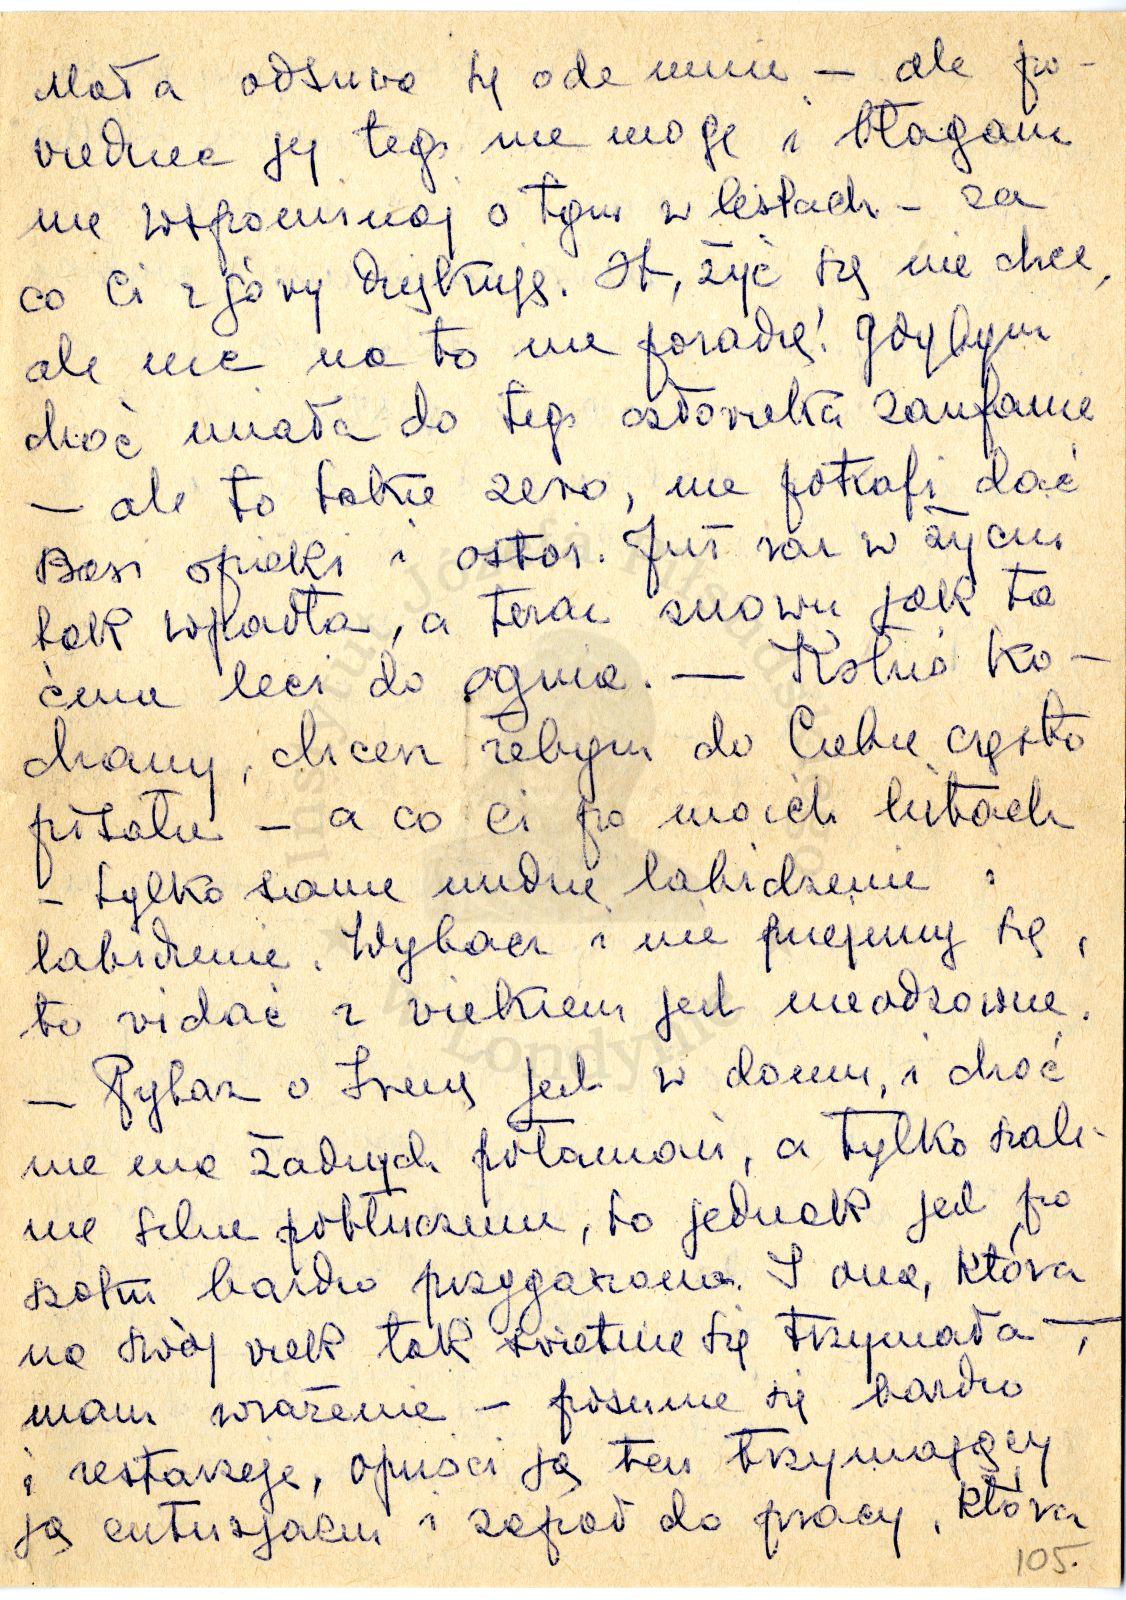 Mała odsuwa się ode mnie – ale po-
wiedzieć jej tego nie mogę i błagam
nie wspominaj o tym w listach – za
co Ci z góry dziękuję. Ot, żyć się nie chce,
ale nic na to nie poradzę! Gdybym
choć miała do tego człowieka zaufanie
– ale to takie zero, nie potrafi dać
Basi opieki i ostoi. Już raz w życiu
tak wpadła, a teraz znowu jak ta
ćma leci do ognia. — Kotuś ko-
chany, chcesz żebym do Ciebie często
pisała – a co Ci po moich listach
– tylko same nudne labidzenie i
labidzenie. Wybacz i nie przejmuj się,
to widać z wiekiem jest nieodzowne.
– Pytasz o Irenę jest w domu, i choć
nie ma żadnych połamań, a tylko szale-
nie silne potłuczenia, to jednak jest po
szoku bardzo przygaszona. I ona, która
na swój wiek tak świetnie się trzymała –,
mam wrażenie – posunie się bardzo
i zestarzeje, opuści ją ten trzymający
ją entuzjazm i zapał do pracy, która
105.
Instytut Józefa Piłsudskiego
w Londynie